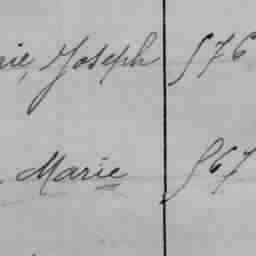 rie, Joseph 576
Marie 567